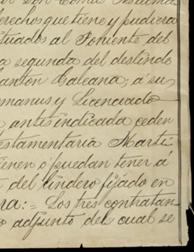 derecho que tiene y pudiera
situados al Poniente del
a segunda del destindo
canton Galeana, a su
manus y Licenciado
antes indicada ceden
estamentaria Marti
tienen o puedan tener a
del lindero fijado en
ra: Los tres contratan
o adjunto del cual se